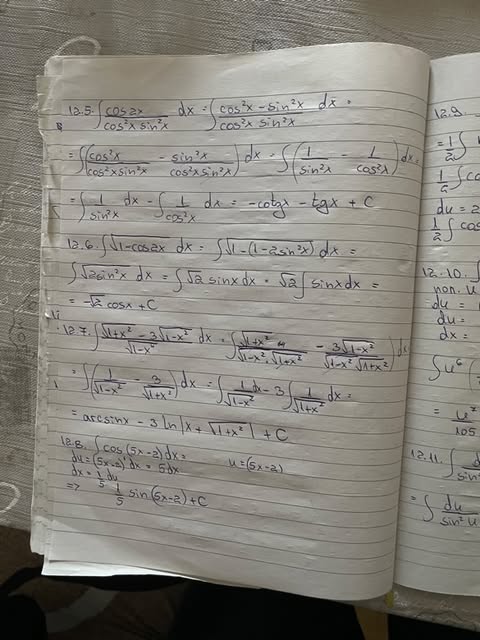 12.5. ∫ cos2x / cos²x sin²x dx = ∫ cos²x - sin²x / cos²x sin²x dx =
= ∫ (cos²x / cos²x sin²x - sin²x / cos²x sin²x) dx = ∫ (1 / sin²x - 1 / cos²x) dx =
= ∫ 1 / sin²x dx - ∫ 1 / cos²x dx = -cotgx - tgx + C
12.6. ∫ √1-cos2x dx = ∫ √1-(1-2sin²x) dx =
∫ √2sin²x dx = ∫ √2 sinx dx = √2 ∫ sinx dx =
= -√2 cosx + C
12.7. ∫ √1+x² - 3√1-x² / √1-x⁴ dx = ∫ (√1+x² / √1-x² √1+x² - 3√1-x² / √1-x² √1+x²) dx
= ∫ (1 / √1-x² - 3 / √1+x²) dx = ∫ 1 / √1-x² dx - 3 ∫ 1 / √1+x² dx =
= arcsinx - 3 ln |x + √1+x²| + C
12.8. ∫ cos(5x-2) dx =
du = (5x-2) dx = 5dx u = (5x-2)
dx = 1/5 du
=> 1/5 sin(5x-2) + C
12.9.
= 1/2
1/2 ∫ co
du = 2
1/2 ∫ cos
12.10. ∫
pon. u
du =
du =
dx =
∫ u⁶
= u⁷ / 105
12.11. ∫ d / sin
= ∫ du / sin²u